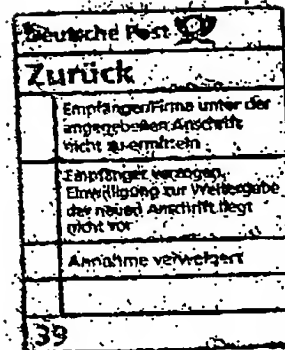 Deutsche Post
Zurück
Empfänger/Firma unter der
angegebenen Anschrift
nicht zu ermitteln
Empfänger verzogen,
Einwilligung zur Weitergabe
der neuen Anschrift liegt
nicht vor
Annahme verweigert
39